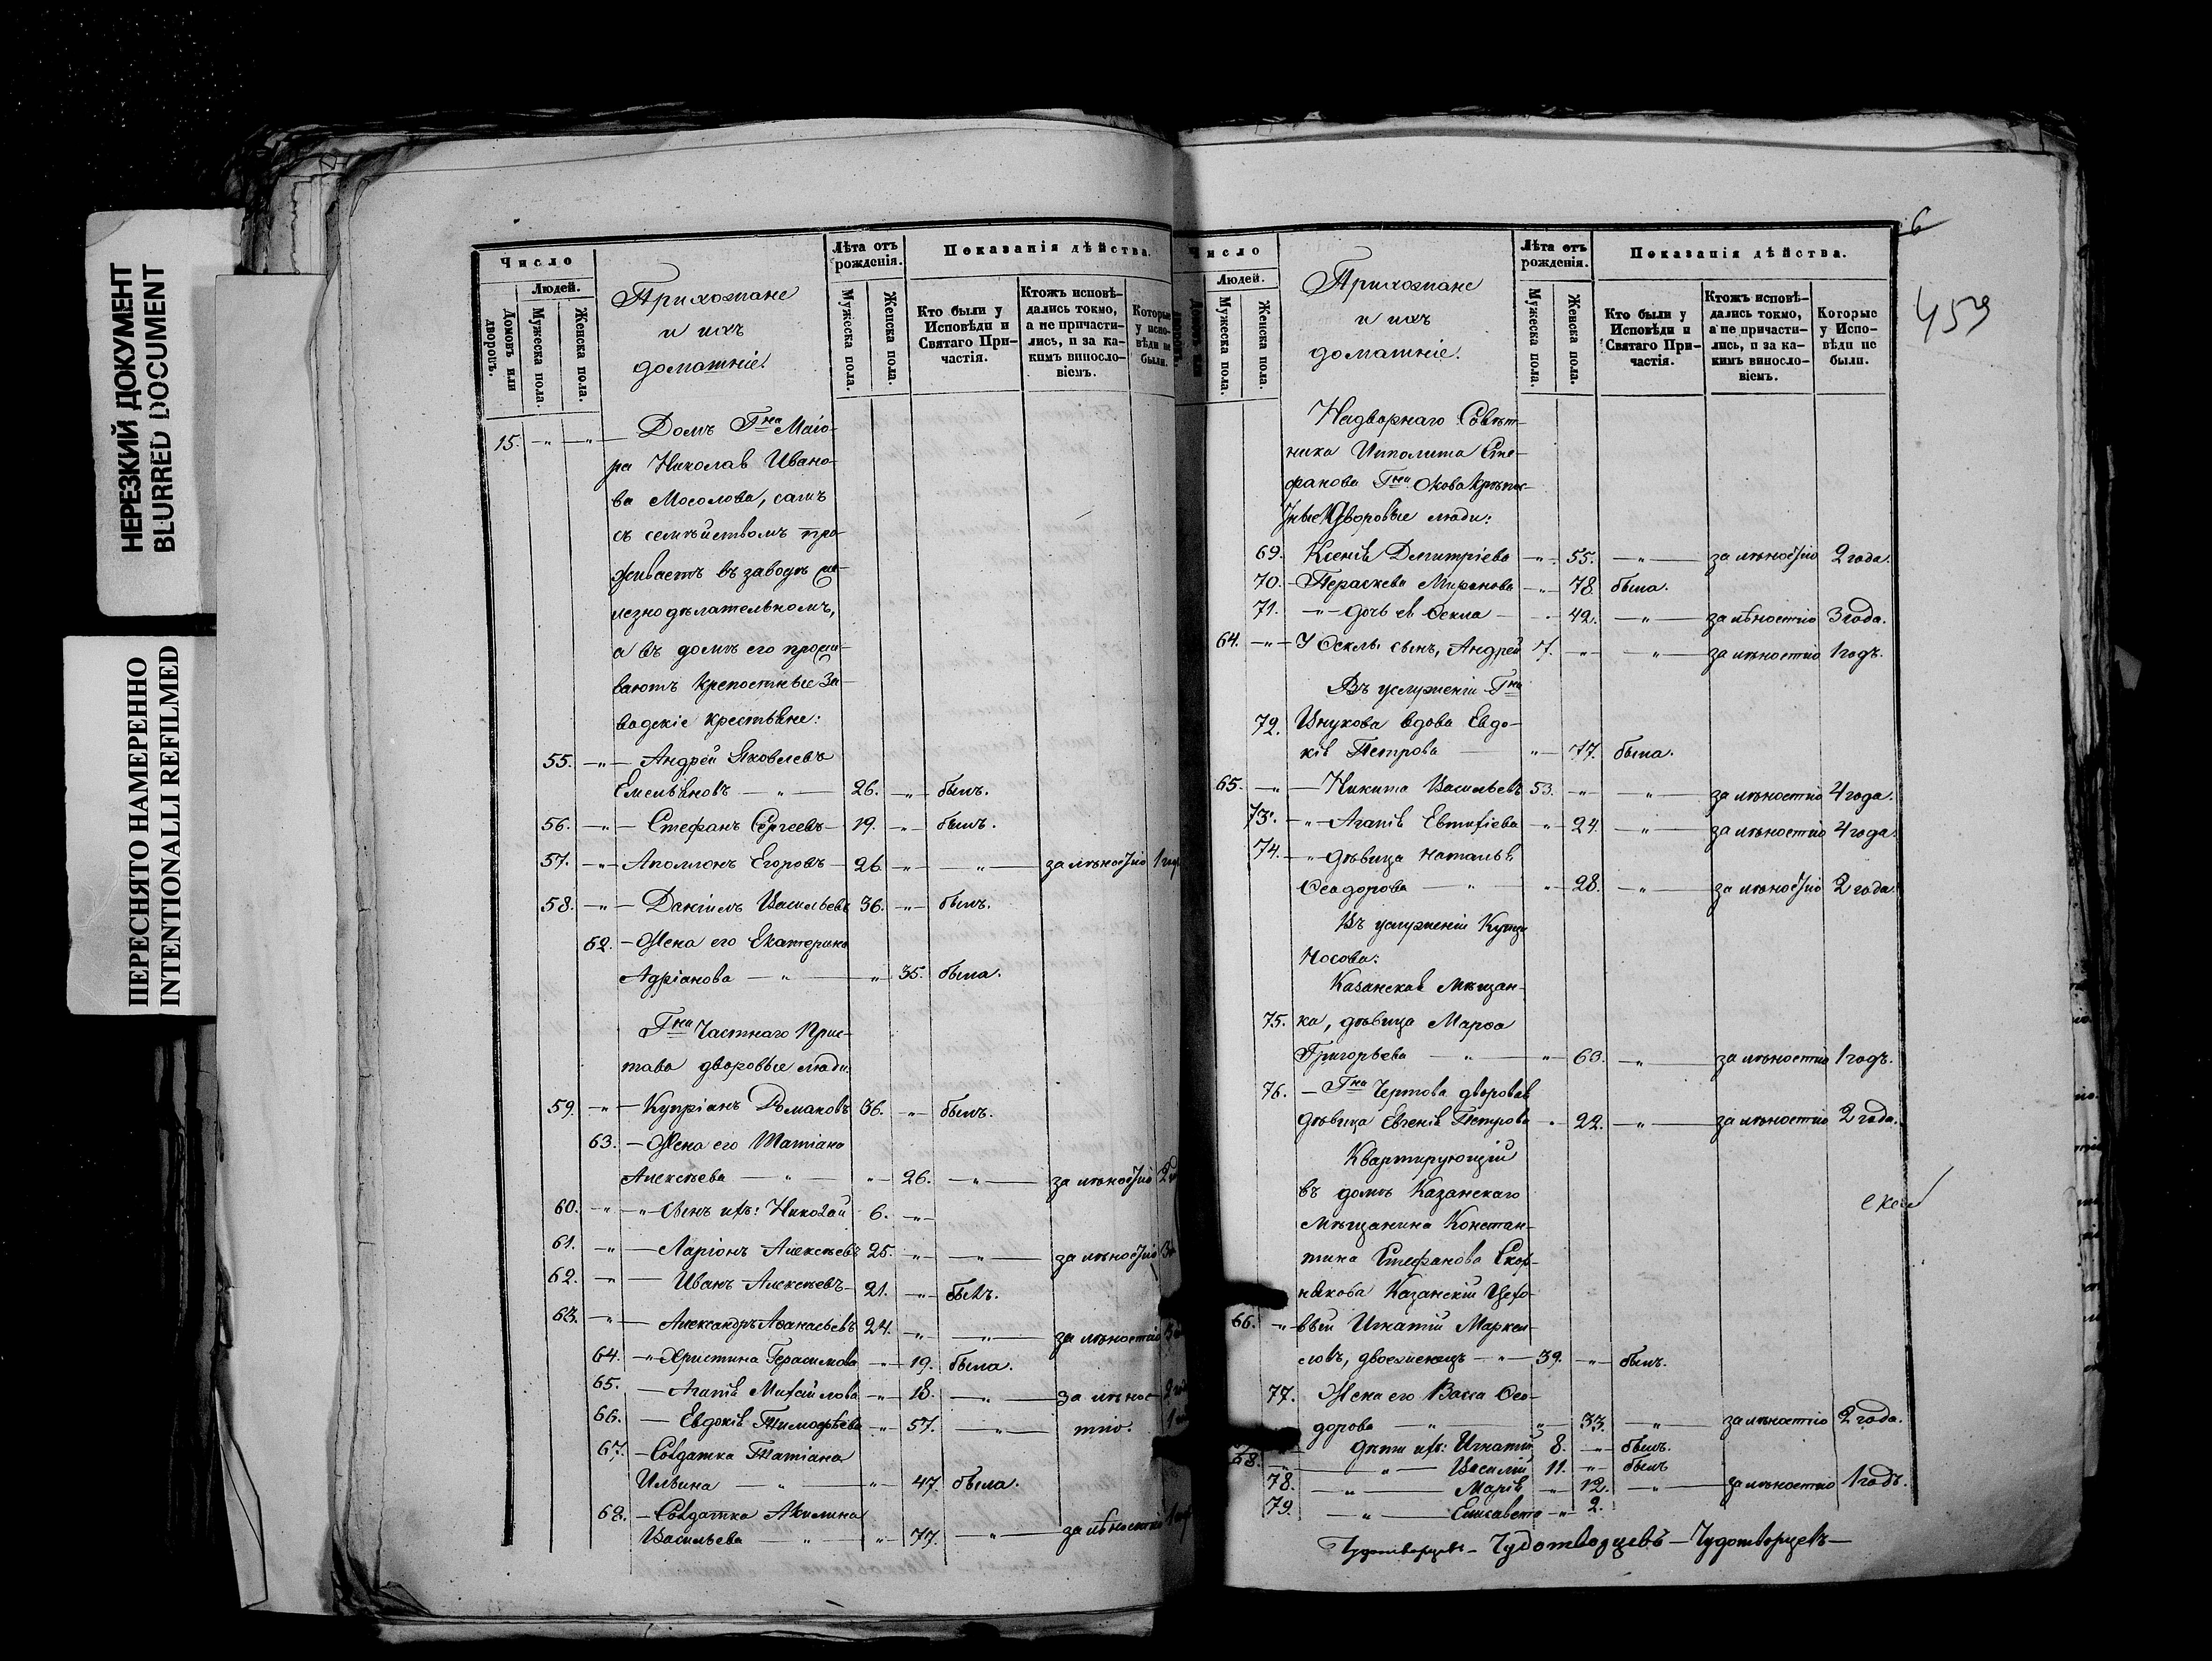 НЕРЕЗКИЙ ДОКУМЕНТ
BLURRED DOCUMENT
ПЕРЕСНЯТО НАМЕРЕННО
INTENTIONALLI REFILMED
Число
Людей.
Домовъ или дворовъ.
Мужеска пола.
Женска пола.
Прихожане
и ихъ
домашніе.
Лѣта отъ рожденія.
Мужеска пола.
Женска пола.
Показанія дѣйства.
Кто были у Исповѣди и Святаго Причастія.
Ктожъ исповѣдались токмо, а не причастились, и за какимъ винословіемъ.
Которые у исповѣди не были.
15. -„- -„- Домъ Гна Маіо-
ра Николая Ивано-
ва Мосолова, самъ
съ семѣйствомъ про-
живаетъ въ заводѣ же-
лезнодѣлательномъ,
а въ домѣ его прожи-
ваютъ крепостные За-
водскіе крестьяне:
55. -„- Андрей Яковлевъ
Емельяновъ -„- 26. -„- былъ.
56. -„- Стефанъ Сергеевъ 19. -„- былъ.
57. -„- Аполлонъ Егоровъ 26. -„- -„- за лѣностію 1
58. -„- Даніилъ Васильевъ 36. -„- былъ.
62. Жена его Екатерина
Адріанова -„- -„- 35. была.
Гна Частнаго Прис-
тава дворовые люди.
59. -„- Купріанъ Романовъ 36. -„- былъ.
63. Жена его Татіана
Алексѣева -„- -„- 26. -„- за лѣностію 2
60. -„- „ Сынъ ихъ: Николай 6. -„-
61. -„- Ларіонъ Алексѣевъ 25. -„- -„- за лѣностію 3
62. -„- Иванъ Алексѣевъ 21. -„- былъ.
63. -„- Александръ Аѳанасьевъ 24. -„- -„- за лѣностію 3
64. -„- Христина Герасимова -„- 19. была.
65. Агапія Михайлова -„- 18. -„- за лѣнос- 2
66. Евдокія Тимофѣева -„- 57. -„- тію. 1
67. Солдатка Татіана
Ильина -„- -„- 47. была.
68. Солдатка Акилина
Васильева -„- -„- 77. -„- за лѣностію 1
Число
Людей.
Мужеска пола.
Женска пола.
Прихожане
и ихъ
домашніе.
Лѣта отъ рожденія.
Мужеска пола.
Женска пола.
Показанія дѣйства.
Кто были у Исповѣди и Святаго Причастія.
Ктожъ исповѣдались токмо, а не причастились, и за какимъ винословіемъ.
Которые у Исповѣди не были.
6
459
Надворнаго Совѣт-
ника Ипполита Сте-
фанова Гна
дворовые люди:
69. Ксенія Дмитріева -„- 55. -„- за лѣностію 2 года.
70. Параскева Миронова -„- 78. была.
71. -„- дочь ея Ѳекла - 42. -„- за лѣностію 3 года.
64. -„- У Ѳеклы сынъ, Андрей 7. -„- -„- за лѣностію 1 годъ.
Въ услуженіи Гна
72. Внукова вдова Евдо-
кія Петрова -„- 77. была.
65. -„- Никита Васильевъ 53. -„- -„- за лѣностію 4 года.
73. -„- Агапія Евтихіева -„- 24. -„- за лѣностію 4 года.
74. -„- дѣвица Наталья
Ѳеодорова -„- -„- 28. -„- за лѣностію 2 года.
Въ услуженіи Купца
Носова:
Казанская мѣщан-
75. ка, дѣвица Марѳа
Григорьева -„- -„- 60. -„- за лѣностію 1 годъ.
76. Гна Чертова дворовая
дѣвица Евгенія Петрова - 22. -„- за лѣностію 2 года.
Квартирующій
въ домѣ Казанскаго
мѣщанина Констан-
тина Стефанова Скор-
някова Казанскій Цехо-
66. -„- вый Игнатій Маркел-
ловъ, двоеженецъ -„- 39. -„- былъ.
77. Жена его Васса Ѳео-
дорова -„- -„- 33. -„- за лѣностію 2 года.
дѣти ихъ: Игнатій 8. -„- былъ.
68. -„- Василій 11. -„- былъ
78. -„- Марія -„- 12. -„- за лѣностію 1 годъ.
79. -„- Елисавета -„- 2.
Чудотворцевъ - Чудотворцевъ - Чудотворцевъ